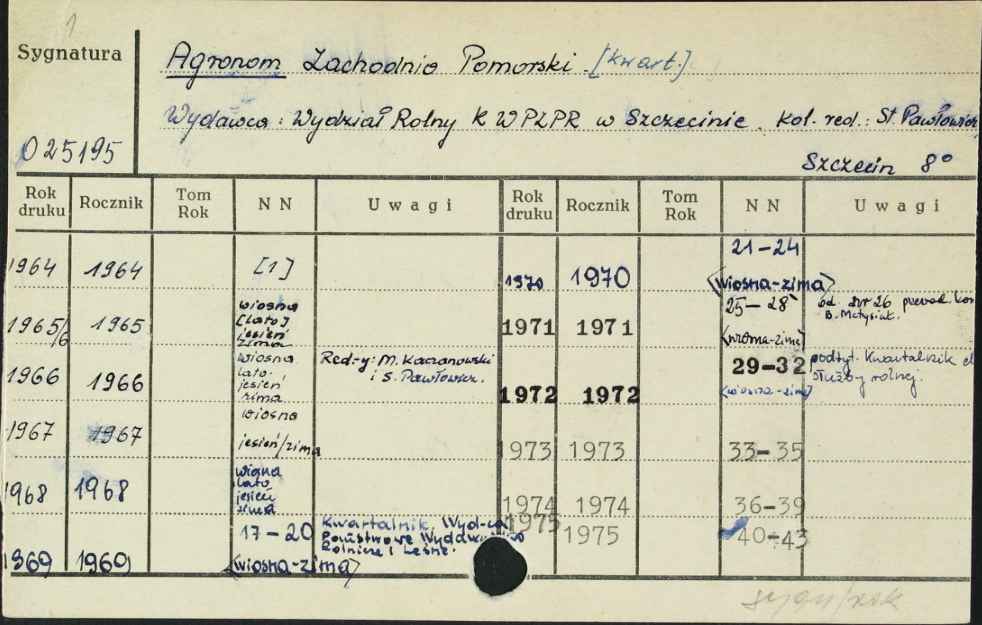 1
Sygnatura
Agronom Zachodnio Pomorski [kwart.]
Wydawca: Wydział Rolny KWPZPR w Szczecinie. Kol. red.: St Pawłowicz
025195
Szczecin 8°
Rok druku Rocznik Tom Rok NN Uwagi Rok druku Rocznik Tom Rok NN Uwagi
1964 1964 [1]
1965/6 1965 wiosna [lato] jesień zima
1966 1966 wiosna lato jesień zima Red-y: M. Kaczanowski i S. Pawłowicz.
1967 1967 wiosna jesień/zima
1968 1968 wiosna lato jesień zima
1969 1969 17-20 (wiosna-zima) Kwartalnik, Wyd-ca Państwowe Rolnicze i Leśne.
1970 1970 21-24 (wiosna-zima)
1971 1971 25-28 (wiosna-zima) od nr 26 B. Matysiak.
1972 1972 29-32 (wiosna-zima) podtyt. Kwartalnik dl służby rolnej.
1973 1973 33-35
1974 1974 36-39
1975 1975 40-43